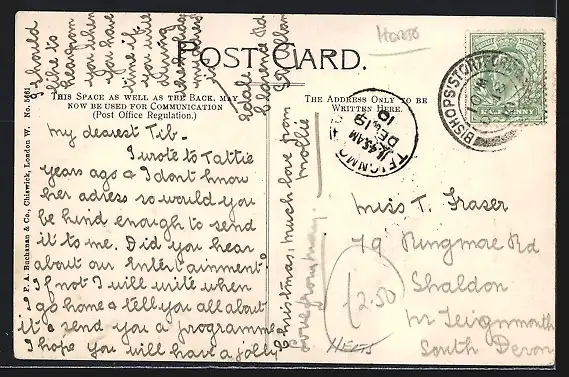 POST CARD.
THIS SPACE AS WELL AS THE BACK, MAY
NOW BE USED FOR COMMUNICATION
(Post Office Regulation.)
THE ADDRESS ONLY TO BE
WRITTEN HERE.
P. A. Buchanan & Co., Chiswick, London W. No. 5661
HERTS
BISHOPS STORTFORD
TEIGNMOUTH
11.45AM
DE 19
10
My dearest Tib_
I wrote to Tattie
years ago & I dont know
her adress so would you
be kind enough to send
it to me. Did you hear
about our Entertainment?
If not I will write when
I go home & tell you all about
it & send you a programme
I hope you will have a jolly
Christmas. Much love from
Mollie
I should
like to
hear from
you when
you have
time if
you will
during
the holidays
Miss T. Fraser
79 Ringmore Rd
Shaldon
nr Teignmouth
South Devon
£2.50
HERTS